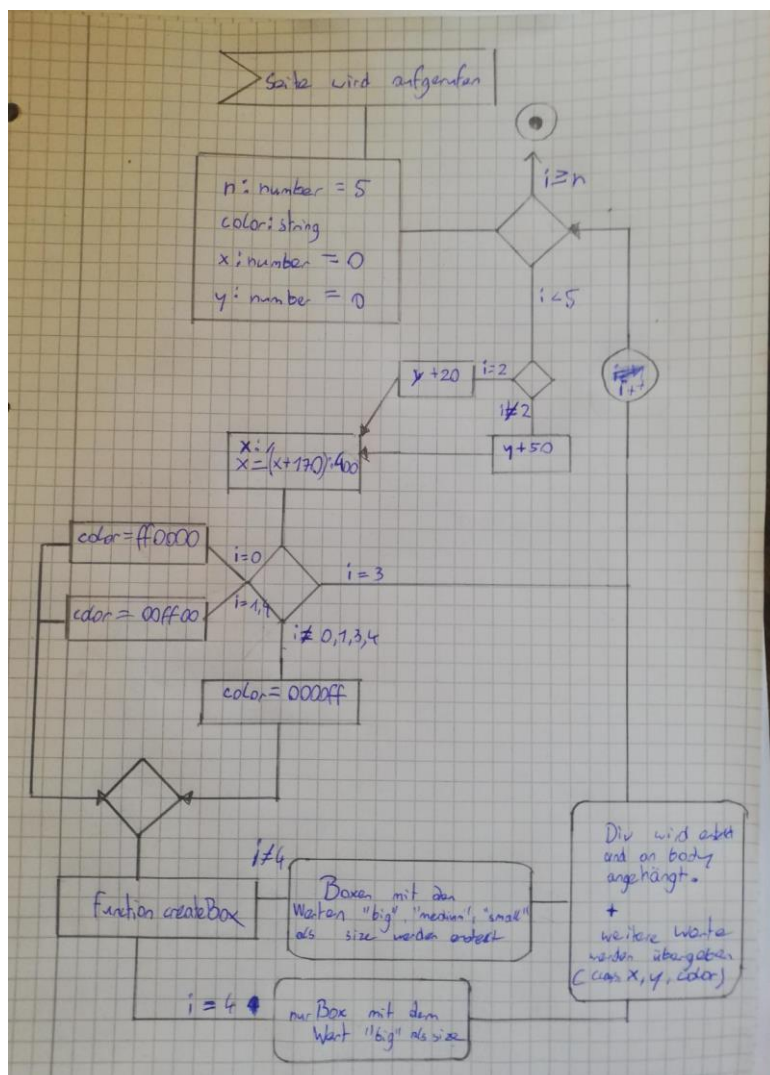 Seite wird aufgerufen
n: number = 5
color: string
x: number = 0
y: number = 0
i≥n
i<5
y+20
i=2
i≠2
y+50
x:
x=(x+170)%400
i++
color=ff0000
i=0
i=3
color=00ff00
i=1,4
i≠ 0,1,3,4
color=0000ff
i≠4
function createBox
Boxen mit den
Werten "big", "medium", "small"
als size werden erstellt
Div wird erstellt
und an body
angehängt.
+
weitere Werte
werden übergeben
(class x, y, color)
i = 4
nur Box mit dem
Wert "big" als size